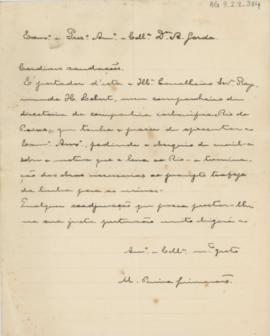 AG 3.2.2.304
Exmo. e Prez.º Am.º e Coll.ª Dr. A. Gordo
Cordiaes saudações.
É portador d'esta o Illº. Cavalheiro Snr. Ray
mundo H. Lobert, meu companheiro da
directoria da companhia carbonifera Rio do
Peixe, que tenho o prazer de apresentar a
Exmo. Amº., pedindo o obsequio de ouvil-o
sobre o motivo que o leva ao Rio - a termina
ção das obras necessarias ao prompto trafego
da linha para as minas.
Qualquer coadjuvação que possa prestar-lhe
na sua justa pretensão muito obrigará a
Amº. e Coll. mtº grato
M.